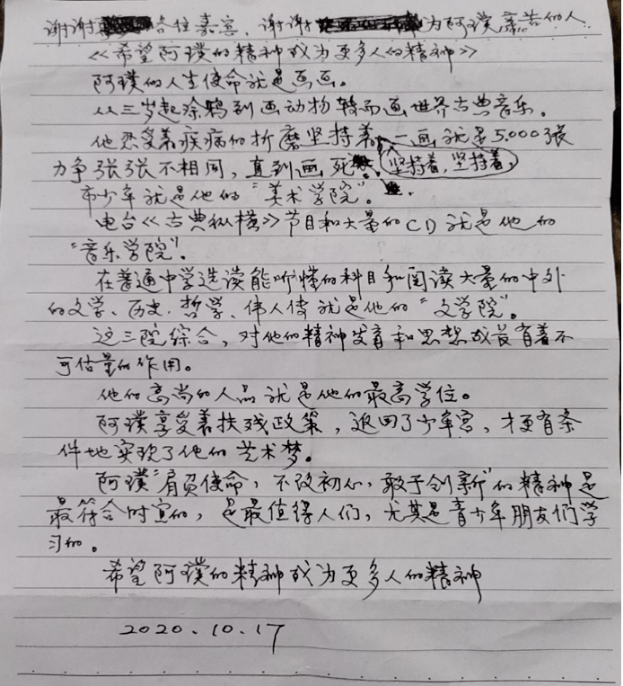 谢谢各位嘉宾，谢谢为阿璞奉告的人
《希望阿璞的精神成为更多人的精神》
阿璞的人生使命就是画画。
从三岁起涂鸦到画动物转而画世界古典音乐。
他忍受着疾病的折磨坚持着，一画就是5.000张
力争张张不相同，直到画死。坚持着，坚持着，
市少年就是他的“美术学院”。
电台《古典纵横》节目和大量的CD就是他的
“音乐学院”。
在普通中学选读能听懂的科目和阅读大量的中外
的文学、历史、哲学、伟人传就是他的“文学院”。
这三院综合，对他的精神发育和思想成长有着不
可估量的作用。
他的高尚的人品就是他的最高学位。
阿璞享受着扶残政策，返回了少年宫，才更有条
件地实现了他的艺术梦。
阿璞“肩负使命，不改初心，敢于创新”的精神是
最符合时宜的，是最值得人们，尤其是青少年朋友们学
习的。
希望阿璞的精神成为更多人的精神
2020.10.17